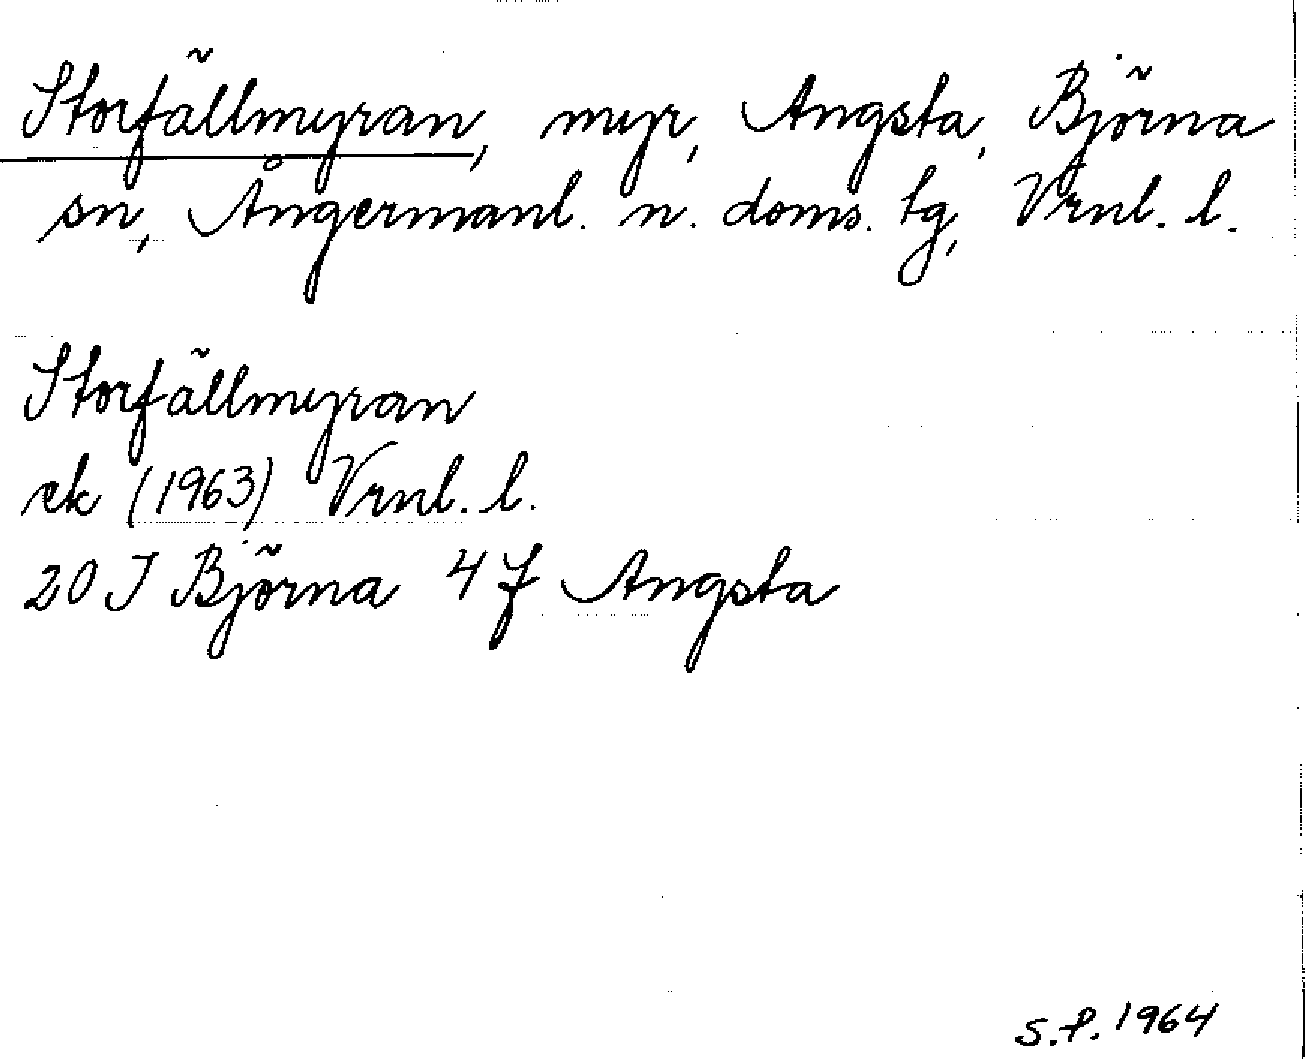 Storfällmyran, myr, Angsta, Björna
sn, Ångermanl. n. doms. tg, Vrnl. l.
Storfällmyran
ek (1963) Vrnl. l.
20 I Björna 4 f Angsta
S.P. 1964